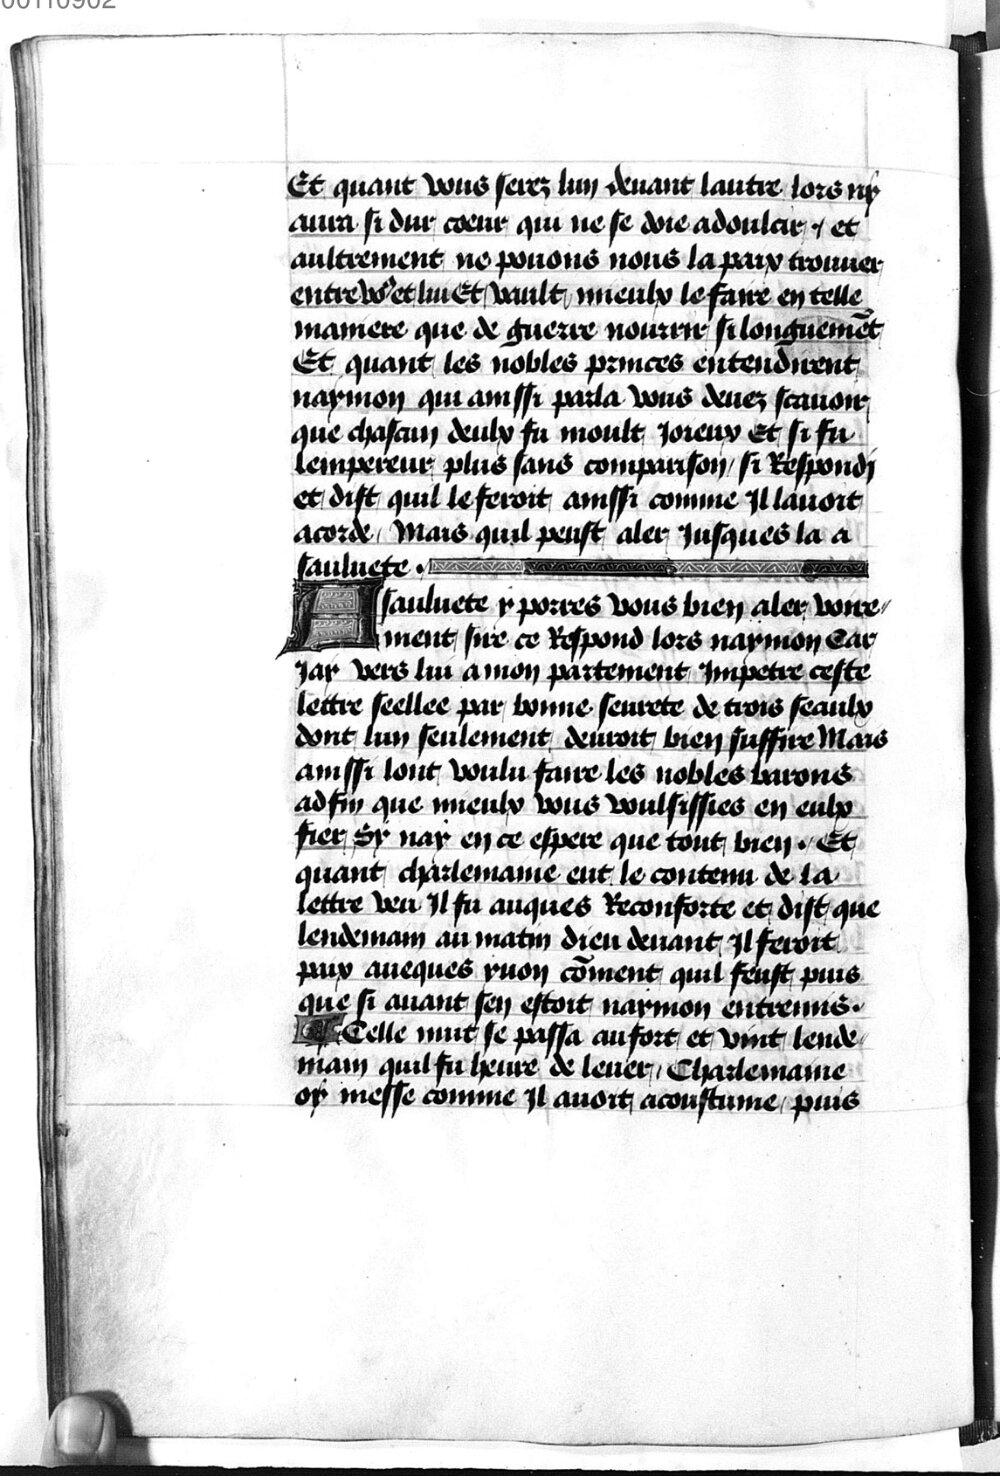 00110902
Et quant vous serez lun deuant lautre lors ny
aura si dur coeur qui ne se doie adoulcir . et
aultrement ne pouons nous la paix trouuer
entre vo9 et lui Et vault mieulx le faire en telle
maniere que de guerre nourrir si longuemēt
Et quant les nobles princes entendirent
naymon qui ainssi parla vous deuez scauoir
que chascun deulx fu moult Joieux Et si fu
lempereur plus sans comparison / si Respondi
et dist quil le feroit ainssi comme Il lauoit
acorde / Mais quil peust aler Jusques la a
sauluete .
A sauluete y porres vous bien aler voire
ment sire ce Respond lors naymon Car
Jay vers lui a mon partement Impetre ceste
lettre seellee par bonne seurete de trois seaulx
dont lun seulement deuroit bien suffire Mais
ainssi lont voulu faire les nobles barons
ad fin que mieulx vous voulsissies en eulx
fier Sy nay en ce espere que tout bien . Et
quant charlemaine eut le contenu de la
lettre veu Il fu auques Reconforte et dist que
lendemain au matin dieu deuant Il feroit
paix aueques yuon cōment quil feust puis
que si auant sen estoit naymon entremis .
Celle nuit se passa au fort et vint lende
main quil fu heure de leuer / Charlemaine
oy messe comme Il auoit acoustume / puis